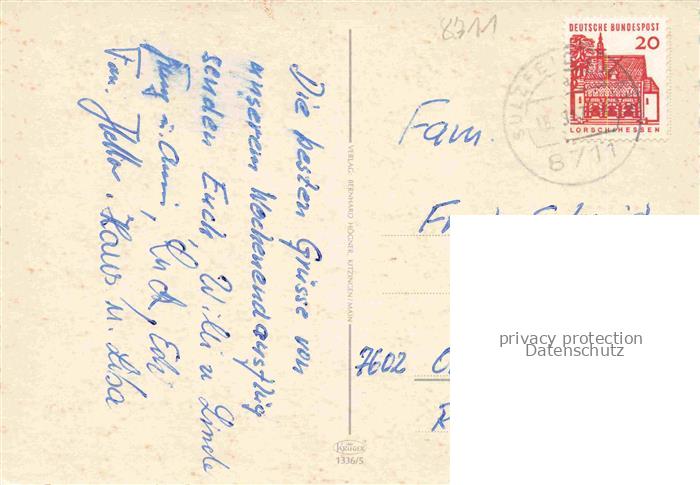 8711
DEUTSCHE BUNDESPOST
20
LORSCH/HESSEN
SULZFELD
8711
Die besten Grüsse von
unserem Wochenendausflug
senden Euch, Willi u Linde
u. Anni, Edi
Fam. Hans u. Lisa
VERLAG BERNHARD HÖGNER KITZINGEN/MAIN
KRÜGER
1336/5
Fam.
7602
privacy protection
Datenschutz